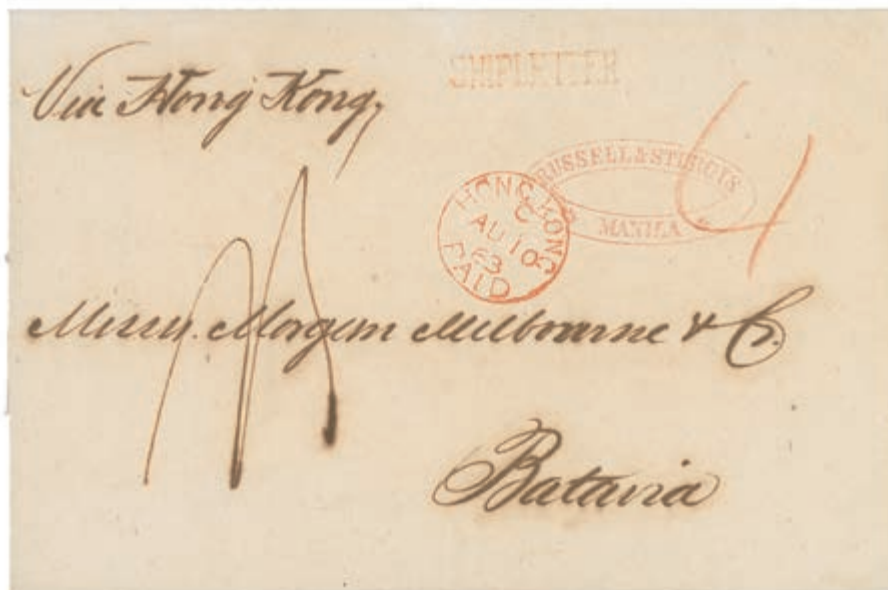 Via Hong Kong,
SHIPLETTER
RUSSELL & STURGIS
MANILA
HONG KONG
C
AU 10
63
PAID
4
Messrs. Morgan Milbourne & Co.
Batavia